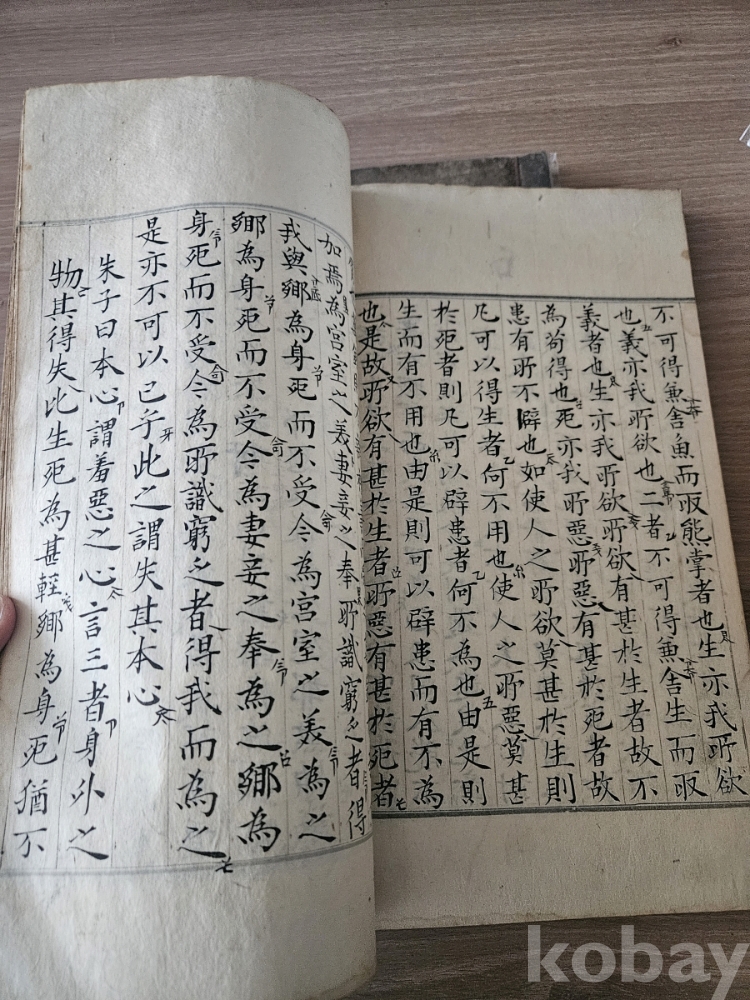 不可得兼舍魚而取熊掌者也生亦我所欲
也義亦我所欲也二者不可得兼舍生而取
義者也生亦我所欲所欲有甚於生者故不
為苟得也死亦我所惡所惡有甚於死者故
患有所不辟也如使人之所欲莫甚於生則
凡可以得生者何不用也使人之所惡莫甚
於死者則凡可以辟患者何不為也由是則
生而有不用也由是則可以辟患而有不為
也是故所欲有甚於生者所惡有甚於死者
加焉為宮室之美妻妾之奉所識窮乏者得
我與鄉為身死而不受今為宮室之美為之
鄉為身死而不受今為妻妾之奉為之鄉為
身死而不受今為所識窮乏者得我而為之
是亦不可以已乎此之謂失其本心
朱子曰本心謂羞惡之心言三者身外之
物其得失比生死為甚輕鄉為身死猶不
kobay